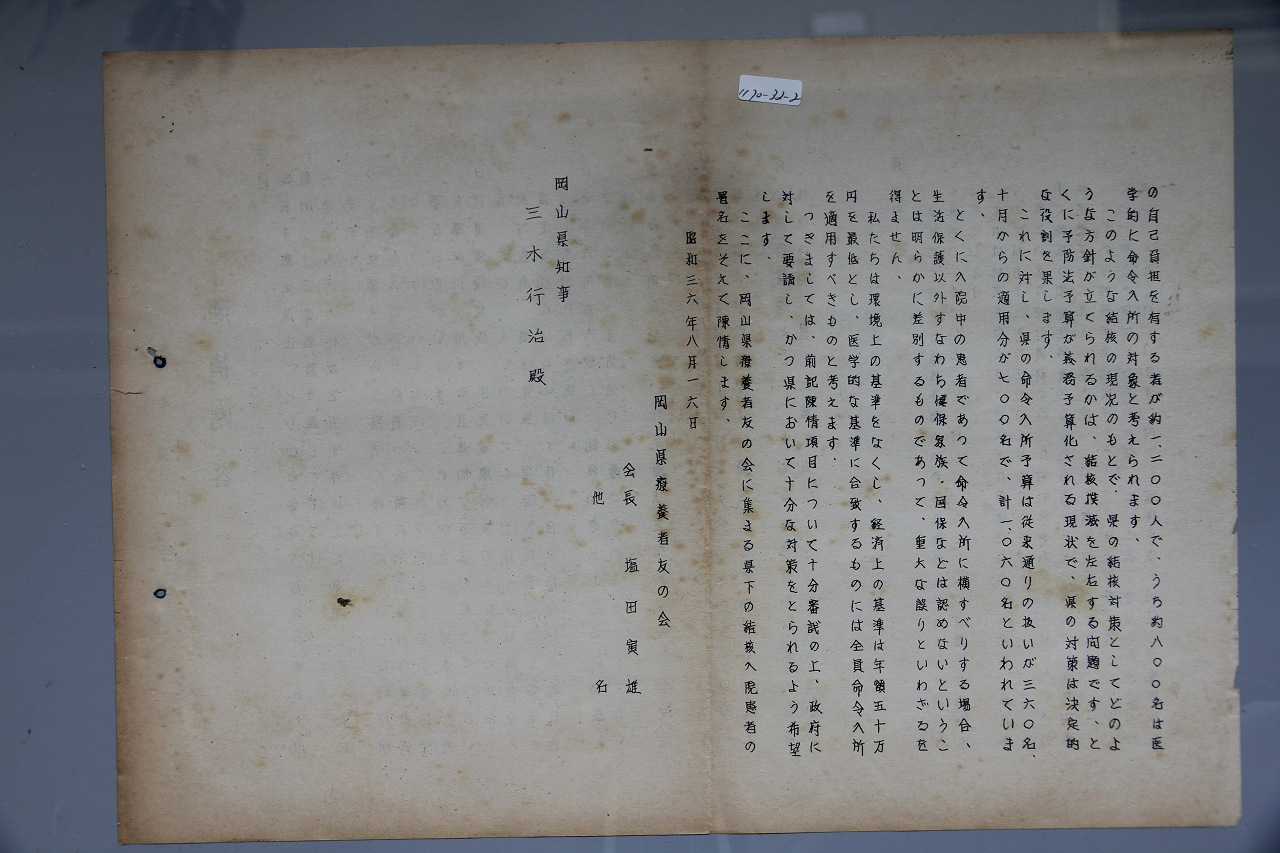 1190-32-2
の自己負担を有する者が約一、二〇〇人で、うち約八〇〇名は医
学的に命令入所の対象と考えられます。
このような結核の現況のもとで、県の結核対策としてどのよ
うな方針が立てられるかは、結核撲滅を左右する問題です、と
くに予防法予算が義務予算化される現状で、県の対策は決定的
な役割を果します、
これに対し、県の命令入所予算は従来通りの扱いが三六〇名、
十月からの適用分が七〇〇名で、計一、〇六〇名といわれていま
す、
とくに入院中の患者であつて命令入所に横すべりする場合、
生活保護以外すなわち健保家族・国保などは認めないというこ
とは明らかに差別するものであって、重大な誤りといわざるを
得ません、
私たちは環境上の基準をなくし、経済上の基準は年額五十万
円を最低とし、医学的な基準に合致するものには全員命令入所
を適用すべきものと考えます、
つきましては、前記陳情項目について十分審議の上、政府に
対して要請し、かつ県において十分な対策をとられるよう希望
します、
ここに、岡山県療養者友の会に集まる県下の結核入院患者の
署名をそえて陳情します、
昭和三六年八月一六日
岡山県療養者友の会
会長 塩田寅雄
他 名
岡山県知事
三木行治殿